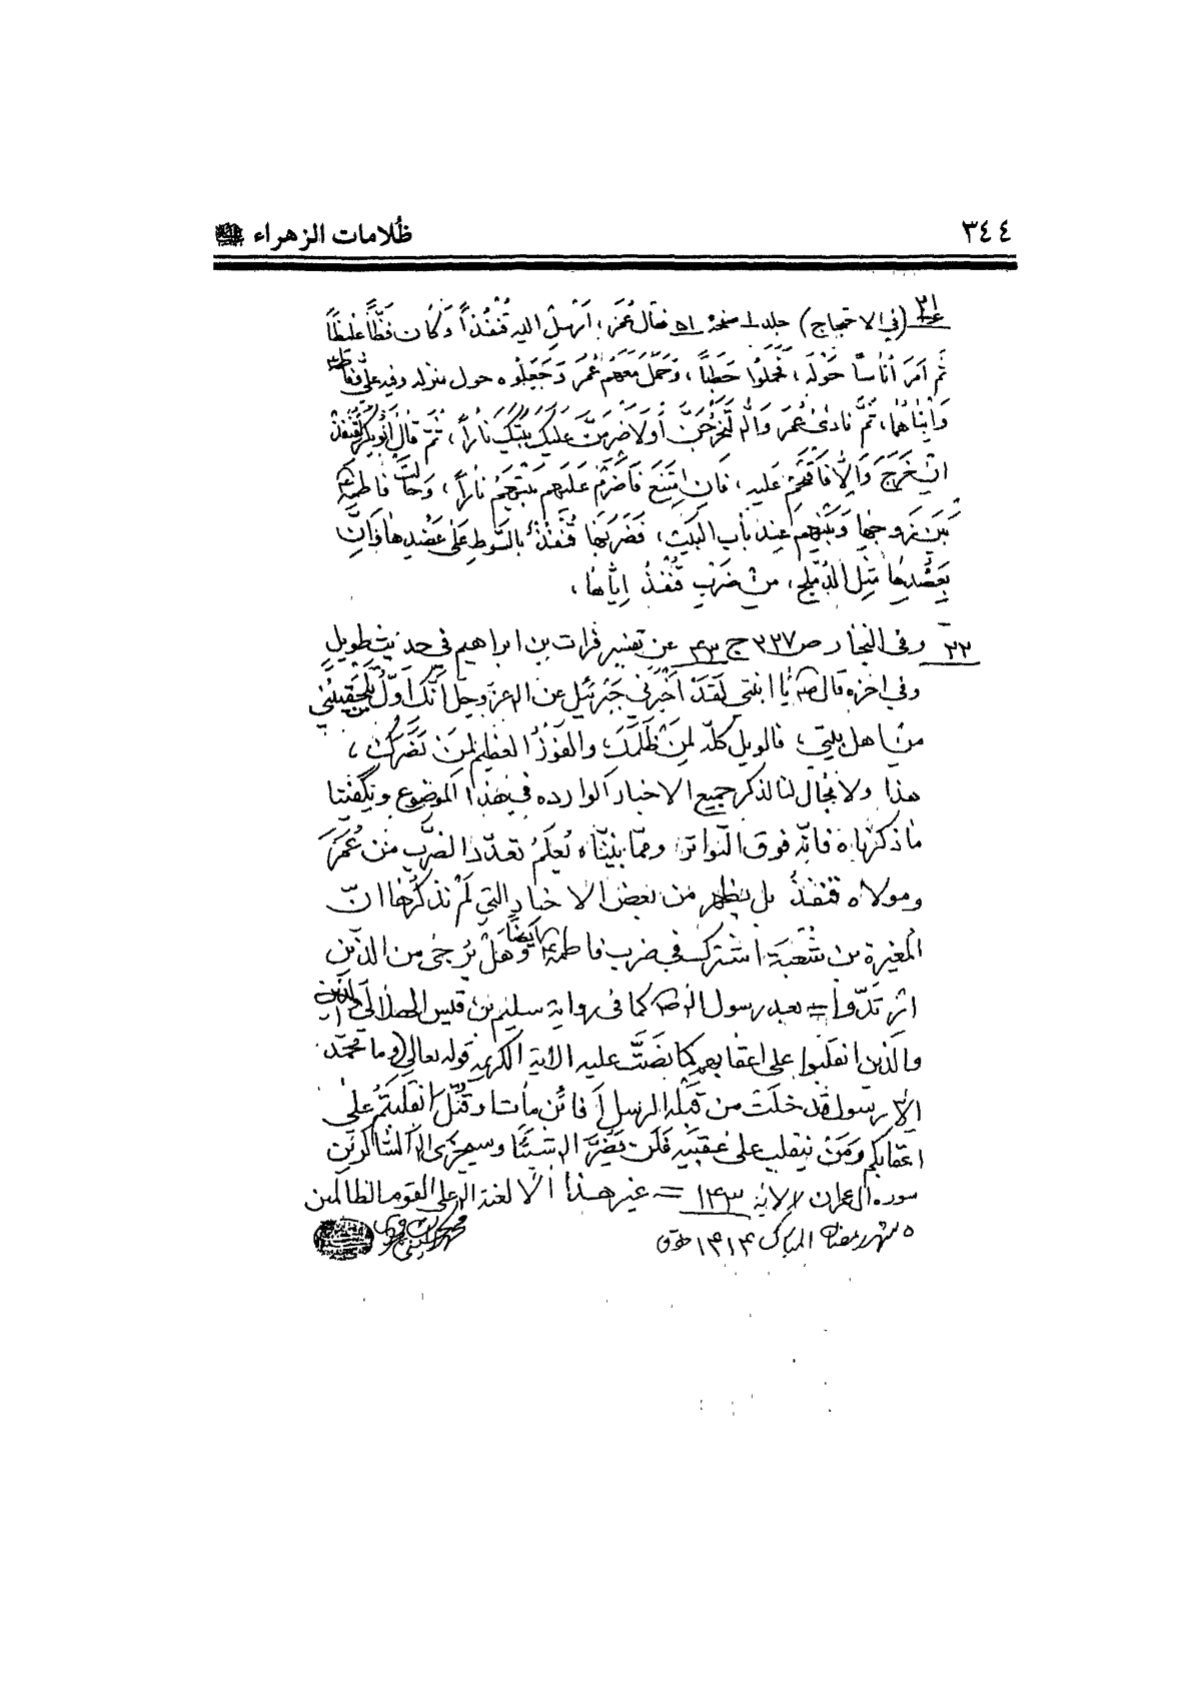 ٣٤٤ ظُلامات الزهراء
٣١ (في الاحتجاج) جلد ١ صفحة ٥١ فقال عُمَر: اَرْسِل اليه قُنْفُذاً وَكان فَظّاً غليظاً
ثم اَمَرَ اُناساً حَوْلَه، فَحَملُوا حَطَباً، وَحَمَلَ مَعَهُم عُمَر وَجَعَلُوه حول منزله وفيه عليّ وفاطمة
وَابْناهُما، ثمّ نادىٰ عُمَر وَاللّه لَتَخرُجَنَّ اَوْ لَاُضرِمَنَّ عَلَيكَ بَيْتَكَ ناراً، ثمّ قال اَبُوبكر لقُنفُذ
اِنْ خَرَجَ وَاِلّا فَاقتَحِمْ عليه، فَاِن اِمتَنَعَ فَاَضْرِمْ عَلَيهِم بَيْتَهُمْ ناراً، وَحالَت فاطمة ع
بَيْنَ زَوجِها وَبَيْنَهم عِند باب البَيت، فَضَرَبَها قُنْفُذ بالسَّوطِ عَلىٰ عَضُدِها وَاِنَّ
بِعَضُدِها مِثلَ الدُّمْلُج، مِن ضَرْبِ قُنْفُذ اِيّاها،
٣٢ وفى البحار ص ٣٣٧ ج ٤٣ عن تفسير فرات بن ابراهيم في حديث طويل
وفي اخره قال ص يا ابنتي لَقَدْ اَخْبَرني جَبرئيل عن اللّه عزّوجلّ اَنّك اَوّلُ من يَلحَقُني
من اهل بيتي، فالويل كلّه لِمَنْ ظَلَمَكِ والفَوْزُ العظيم لِمَن نَصَرَكِ،
هذا ولا مجال لنا لذكر جميع الاخبار الوارده في هذا الموضوع ويكفينا
ما ذكرناه فانّه فوق التواتر، وممّا بيّنّاه يُعلَمُ تعدّد الضّرب من عُمَر
ومولاه قنفذ بل يظهر من بعض الاخبار التي لَمْ نذكُرها انّ
المغيرة بن شُعْبَة اشترك في ضرب فاطمة ع ايضاً وَهَل يُرجىٰ من الذين
ارتَدّوا = بعد رسول اللّه ص كما في رواية سليم بن قيس الهلالي
والّذين انقلبوا على اعقابهم كما نَصَّتْ عليه الآية الكريمة قوله تعالى (وما محمّد
الّا رسول قد خلت من قَبْلِه الرسل اَفَائن مات او قُتِل انقلبتُم على
اعقابكم ومَن ينقلب على عَقِبَيه فَلَن يَضُرّ اللّه شيئاً وسيجزى اللّه الشّاكرين
سوره آل عمران الاٰية ١٤٣ = غير هذا اَلا لعنة اللّه على القوم الظالمين
٥ شهر رمضان المبارك ١٤١٤ هـ ق